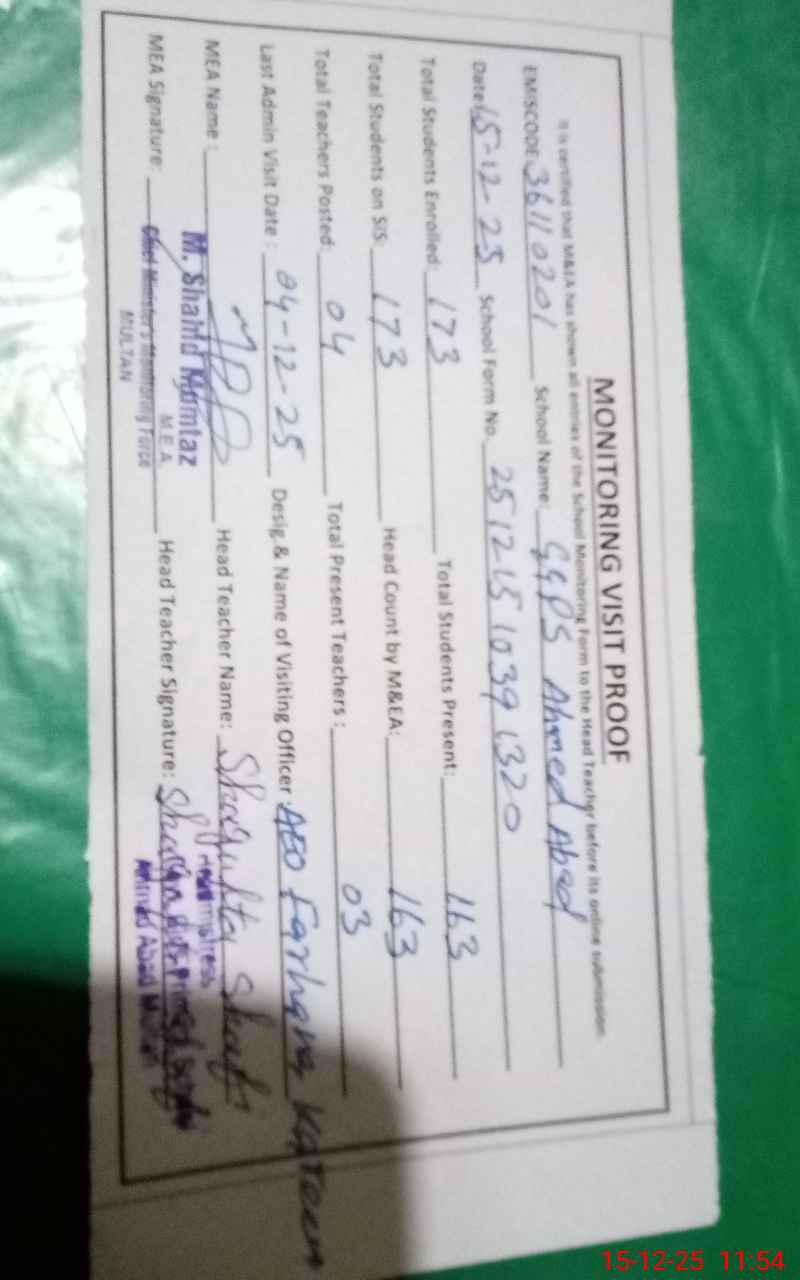 MONITORING VISIT PROOF
It is certified that M&EA has shown all entries of the School Monitoring Form to the Head Teacher before its online submission.
EMISCODE: 36110201 School Name: GGPS Ahmed Abad
Date: 15-12-25 School Form No. 25121510391320
Total Students Enrolled: 173 Total Students Present: 163
Total Students on SIS: 173 Head Count by M&EA: 163
Total Teachers Posted: 04 Total Present Teachers : 03
Last Admin Visit Date : 04-12-25 Desig & Name of Visiting Officer : AEO Farhana Kaleem
MEA Name : Head Teacher Name: Shagufta Shafi
M. Shahid Mumtaz
M.E.A.
Headmistress
MEA Signature: Head Teacher Signature:
Chief Minister's Monitoring Force
MULTAN
Ahmad Abad Multan
15-12-25 11:54